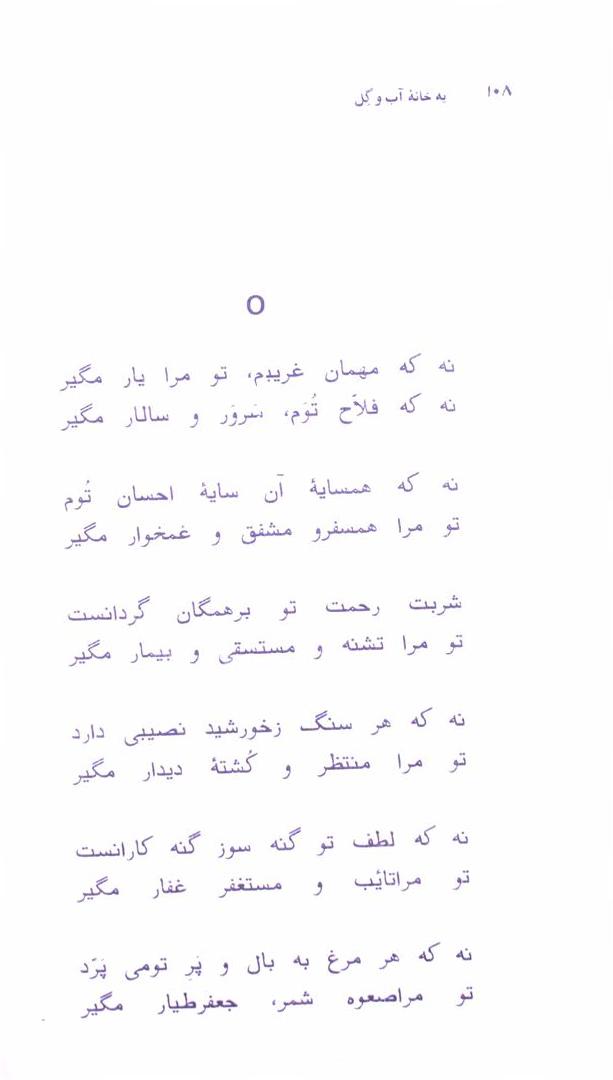 ۱۰۸ به خانهٔ آب و گِل
نه که مهمان غریبم، تو مرا یار مگیر
نه که فلاّح تُوَم، سَروَر و سالار مگیر
نه که همسایهٔ آن سایهٔ احسان تُوم
تو مرا همسفرو مشفق و غمخوار مگیر
شربت رحمت تو برهمگان گردانست
تو مرا تشنه و مستسقی و بیمار مگیر
نه که هر سنگ زخورشید نصیبی دارد
تو مرا منتظر و کُشتهٔ دیدار مگیر
نه که لطف تو گنه سوز گنه کارانست
تو مراتائب و مستغفر غفار مگیر
نه که هر مرغ به بال و پَرِ تومی پَرّد
تو مراصعوه شمر، جعفرطیار مگیر